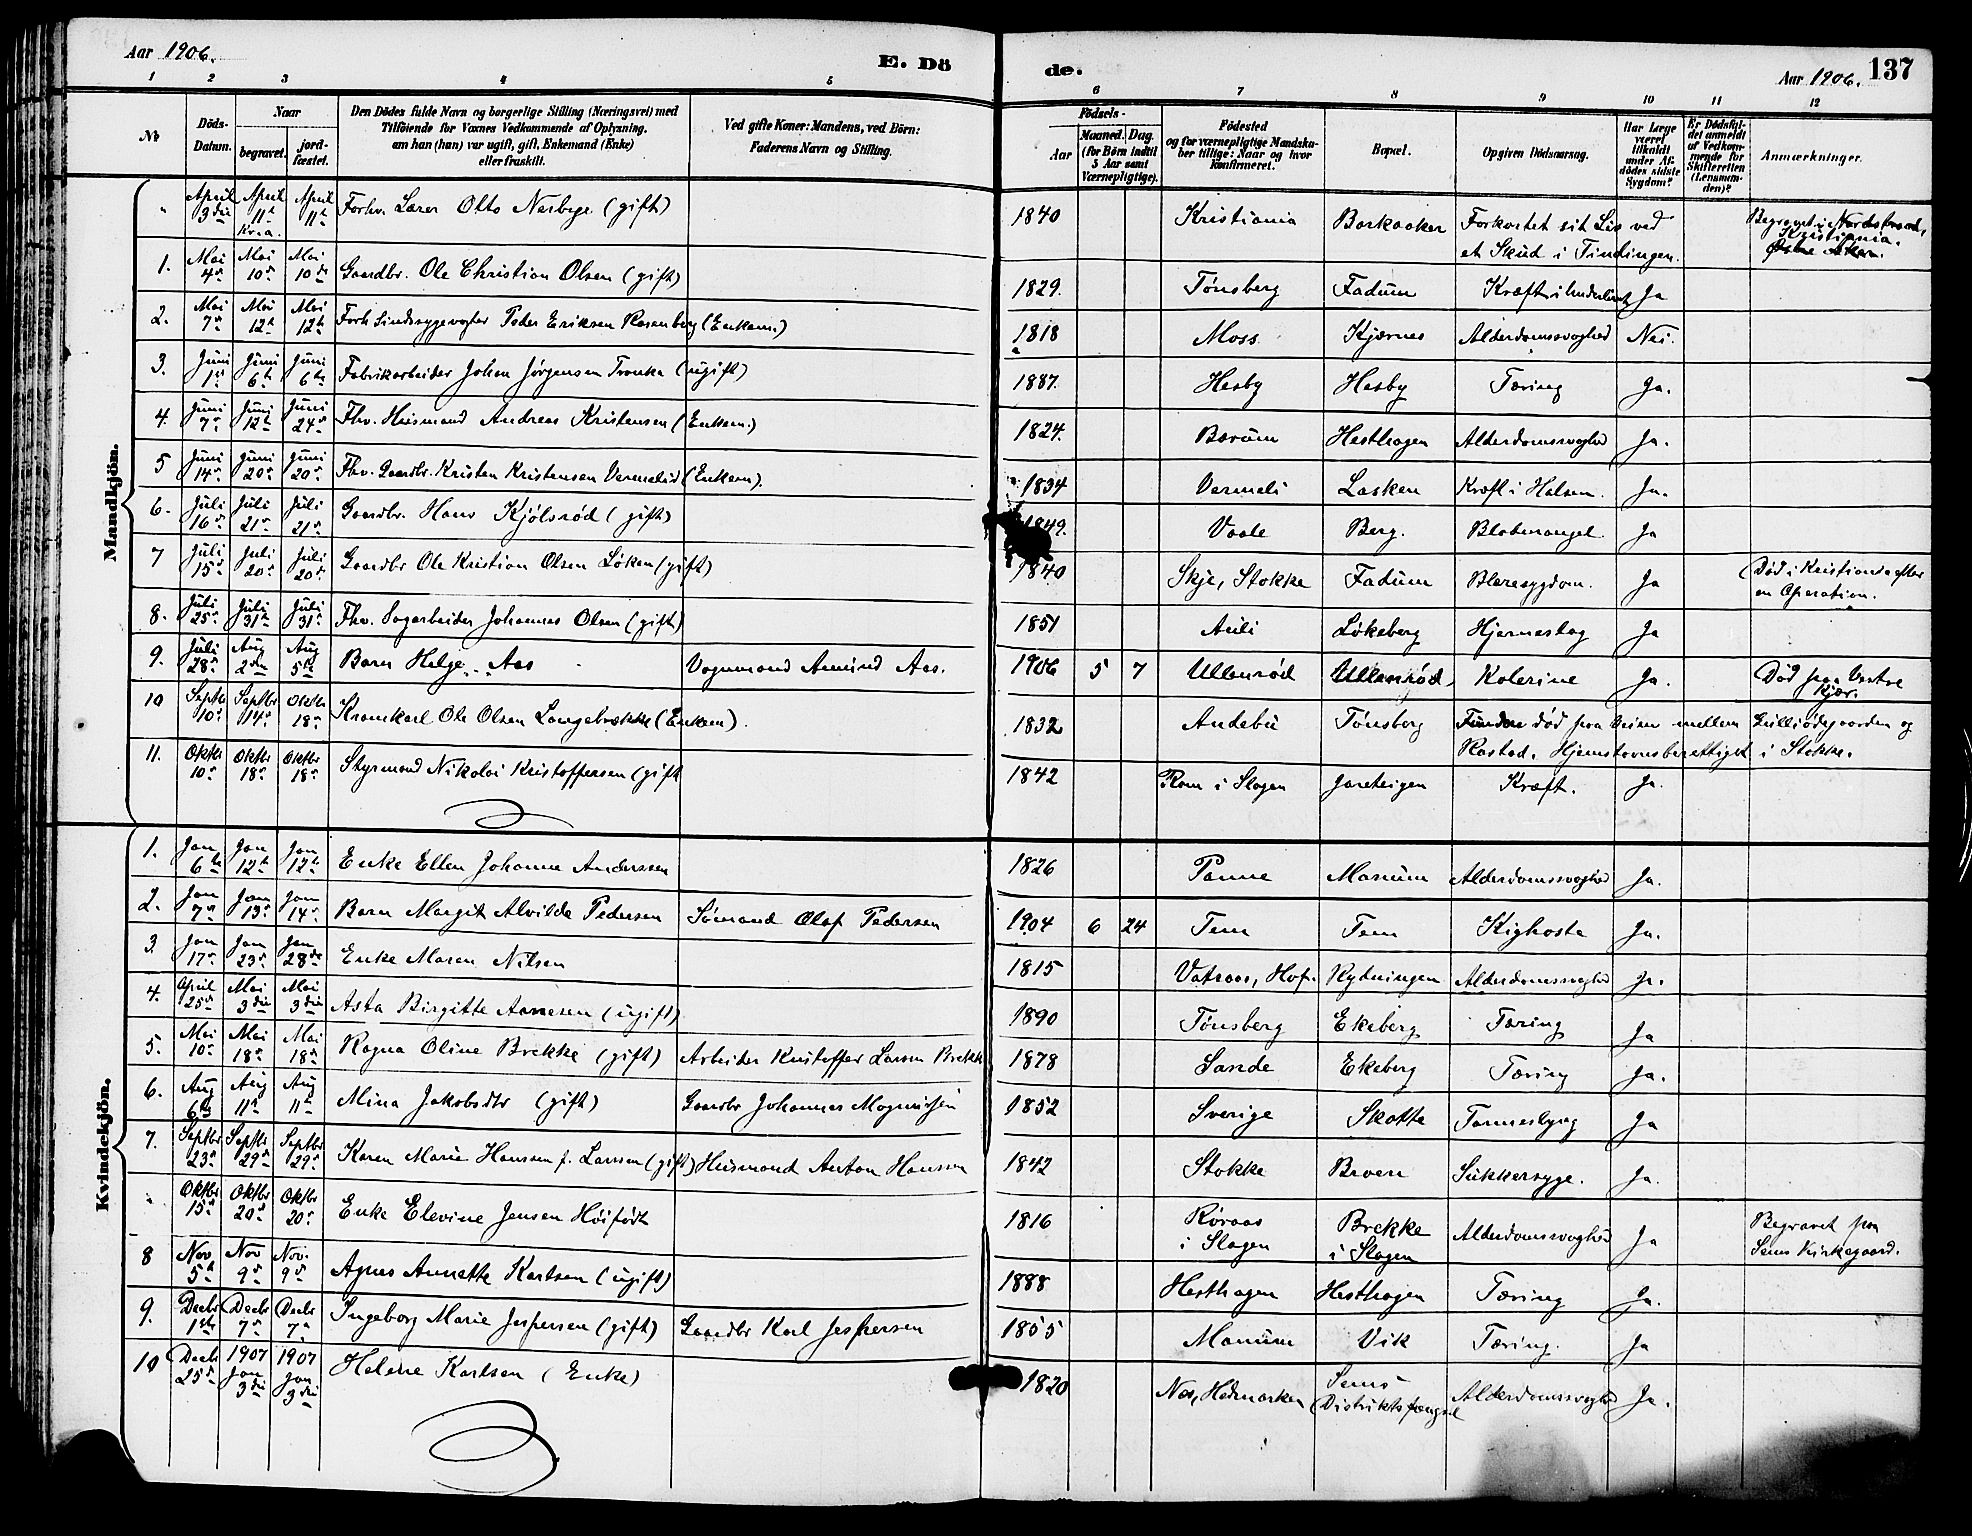 Aar 1906.
E. Dö
de.
Aar 1906. 137
1 2 3 4 5 6 7 8 9 10 11 12
No
Döds-
Datum.
Naar
begravet.
jord-
fæstet.
Den Dödes fulde Navn og borgerlige Stilling (Næringsvei) med
Tilföiende for Voxnes Vedkommende af Oplysning.
om han (hun) var ugift, gift, Enkemand (Enke)
eller fraskilt.
Ved gifte Koner: Mandens, ved Börn:
Faderens Navn og Stilling.
Födsels-
Aar
Maaned. Dag.
(for Börn indtil
5 Aar samt
Værnepligtige).
Födested
og for værnepligtige Mandskaber
tillige: Naar og hvor
konfirmeret.
Bopæl.
Opgiven Dödsaarsag.
Har Læge
været
tilkaldt
under Af-
dödes sidste
Sygdom?
Er Dödsfal-
det anmeldt
af Vedkom-
mende for
Skifteretten
(Lensman-
den)?
Anmærkninger.
Mandkjön.
" April 3die April 11te Kr.a. April 11te Forhv. Lærer Otto Nærbye (gift) 1840 Kristiania Barkaaker Forkortet sit Liv ved et Skud i Tindingen. Begravet i Nordstrand, Kristiania. Østre Aker.
1. Mai 4de Mai 10de Mai 10de Gaardbr. Ole Christian Olsen (gift) 1829. Tønsberg Fadum Kræft i Underlivet Ja
2. Mai 7de Mai 12te Mai 12te Forh Sindssygevogter Peder Eriksen Rosenberg (Enkem.) 1818 Moss Kjærnes Alderdomssvaghed Nei.
3. Juni 1ste Juni 6te Juni 6te Fabrikarbeider Johan Jørgensen Tronka (ugift) 1887. Hesby Hesby Tæring Ja.
4. Juni 7de Juni 12te Juni 24de Fhv. Husmand Andreas Kristensen (Enkem.) 1824. Bærum Hesthagen Alderdomssvaghed Ja.
5 Juni 14de Juni 20de Juni 20de Fhv. Gaardbr. Kristen Kristensen Vermelid (Enkem). 1834 Vermeli Lasken Kræft i Halsen. Ja.
6. Juli 16de Juli 21de Juli 21de Gaardbr. Hans Kjölsrød (gift) 1849. Vaale Berg. Blodmangel Ja
7 Juli 15de Juli 20de Juli 20de Gaardbr Ole Kristian Olsen Løken (gift) 1840 Skje, Stokke Fadum Blæresygdom. Ja Død i Kristiania efter en Operation.
8. Juli 25de Juli 31te Juli 31te Fhv. Sagarbeider Johannes Olsen (gift) 1851 Auli Løkeberg Hjerneslag Ja
9. Juli 28de Aug 2den Aug 5te Barn Helge Aas Vognmand Amund Aas. 1906 5 7 Ullenrød Ullenrød Kolerine Ja. Død paa Vestre Kjær.
10 Septbr 10de Septbr 14de Oktbr 18de Kramkarl Ole Olsen Langebrække (Enkem). 1832 Andebu Tønsberg Funden død paa Veien mellem Gulliødegaarden og Rastad. Hjemstavnsberettiget i Stokke.
11. Oktbr 10de Oktbr 18de Oktbr 18de Styrmand Nikolai Kristoffersen (gift 1842 Rom i Slagen Jareteigen Kræft. Ja.
Kvindekjön.
1. Jan 6te Jan 12te Jan 12te Enke Ellen Johanne Anderssen 1826 Panne Manum Alderdomssvaghed Ja.
2. Jan 7de Jan 13de Jan 14de Barn Margit Alvilde Pedersen Sømand Olaf Pedersen 1904 6 24 Tem Tem Kighoste Ja.
3 Jan 17de Jan 23de Jan 28de Enke Maren Nilsen 1815 Vataas, Hof. Rydningen Alderdomssvaghed Ja.
4. April 25de Mai 3die Mai 3die Asta Birgitte Arnesen (ugift) 1890 Tønsberg Ekeberg Tæring Ja
5. Mai 10de Mai 18de Mai 18de Ragna Oline Brekke (gift) Arbeider Kristoffer Larsen Brekk 1878 Sande Ekeberg Tæring Ja.
6. Aug 6te Aug 11te Aug 11te Mina Jakobsdtr (gift) Gaardbr Johannes Magnussen 1852 Sverige Skotte Tarmeslyng Ja
7. Septbr 23de Septbr 29de Septbr 29de Karen Marie Hanssen f. Larssen (gift) Husmand Anton Hanssen 1842 Stokke Broen Sukkersyge. Ja.
" Oktbr 15de Oktbr 20de Oktbr 20de Enke Elevine Jensen Høifødt 1816 Røraas i Slagen Brekke i Slagen Alderdomssvaghed Ja Begravet paa Sems Kirkegaard.
8 Nov 5te Nov 9de Nov. 9de Agnes Annette Karlsen (ugift) 1888 Hesthagen Hesthagen Tæring Ja.
9. Decbr 1ste Decbr 7de Decbr 7de Ingeborg Marie Jespersen (gift) Gaardbr Karl Jespersen 1855 Manum Vik Tæring. Ja
10 Decbr 25de 1907 Jan 3die 1907 Jan 3die Helene Karlsen (Enke) 1820 Nes, Hedmarken Sems Distriktsfængsel Alderdomssvaghed Ja.